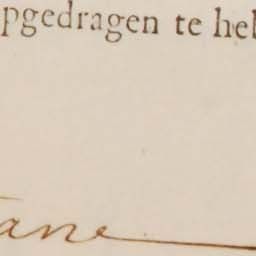 pgedragen te hel
ane